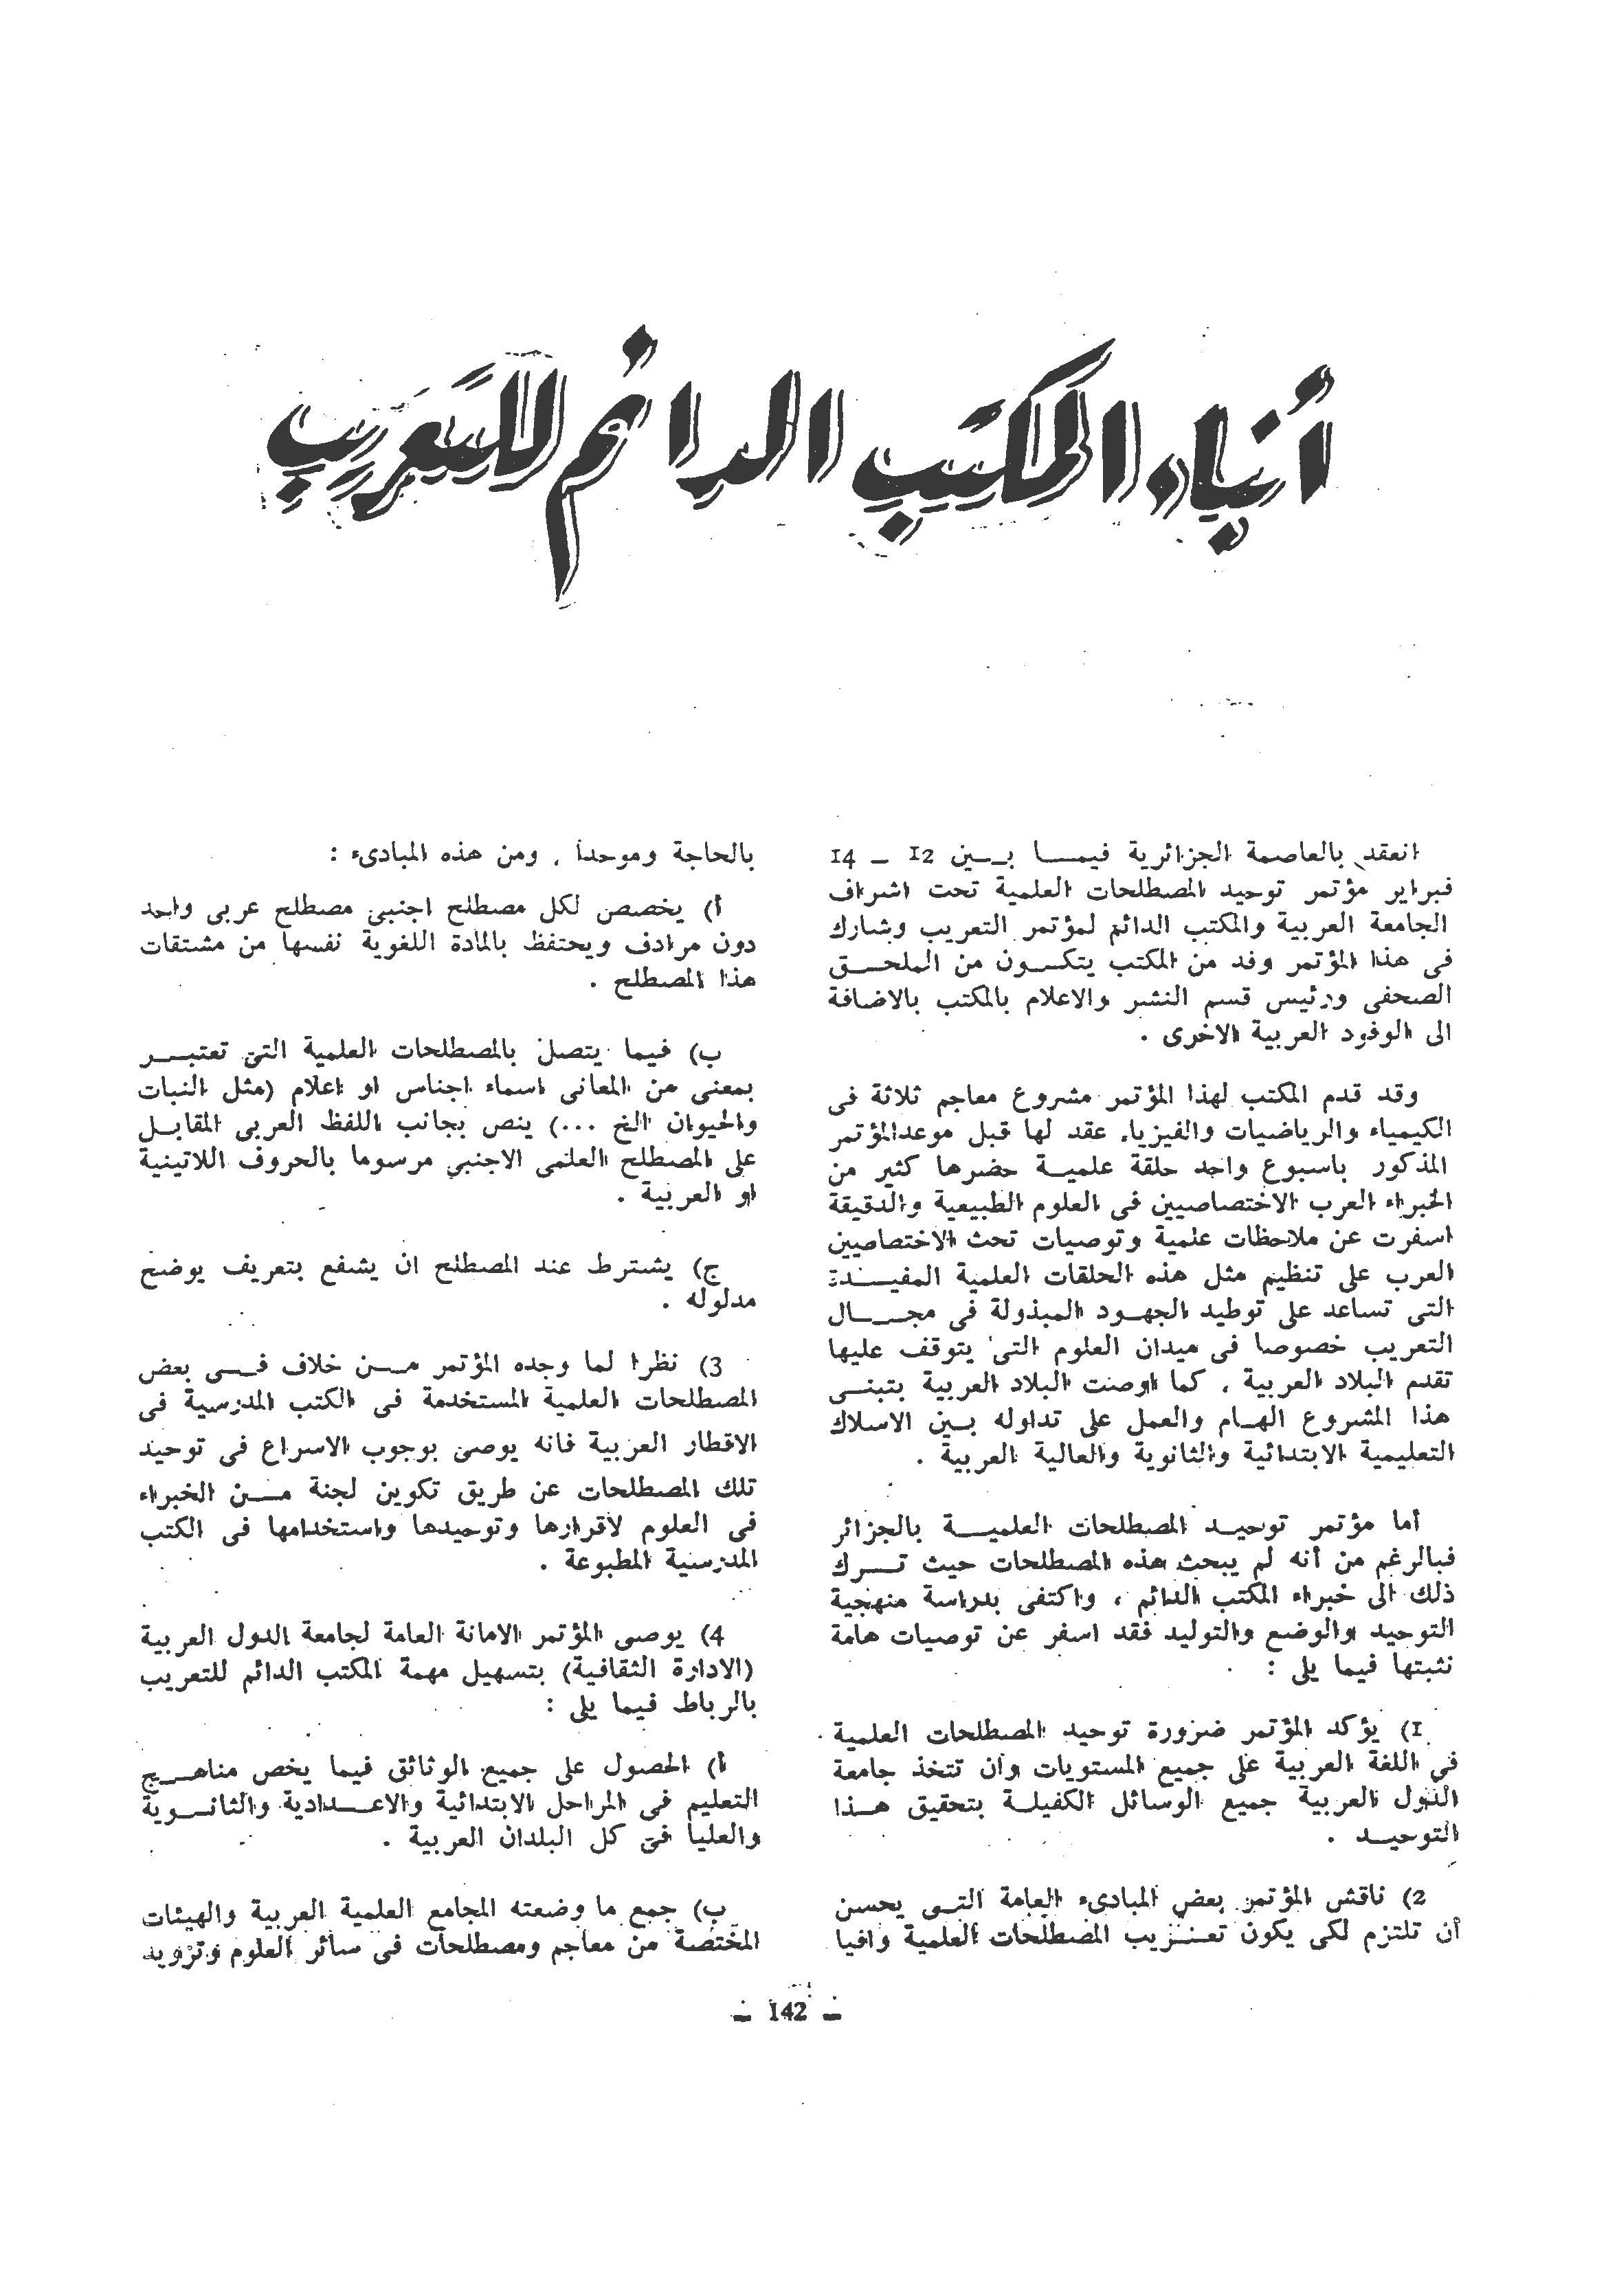 أنباء المكتب الدائم للتعريب
انعقد بالعاصمة الجزائرية فيما بين 12 – 14
فبراير مؤتمر توحيد المصطلحات العلمية تحت اشراف
الجامعة العربية والمكتب الدائم لمؤتمر التعريب وشارك
فى هذا المؤتمر وفد من المكتب يتكون من الملحق
الصحفى ورئيس قسم النشر والاعلام بالمكتب بالاضافة
الى الوفود العربية الاخرى .
وقد قدم المكتب لهذا المؤتمر مشروع معاجم ثلاثة فى
الكيمياء والرياضيات والفيزياء عقد لها قبل موعد المؤتمر
المذكور باسبوع واحد حلقة علمية حضرها كثير من
الخبراء العرب الاختصاصيين فى العلوم الطبيعية والدقيقة
اسفرت عن ملاحظات علمية وتوصيات تحث الاختصاصيين
العرب على تنظيم مثل هذه الحلقات العلمية المفيدة
التى تساعد على توطيد الجهود المبذولة فى مجال
التعريب خصوصا فى ميدان العلوم التى يتوقف عليها
تقدم البلاد العربية ، كما اوصت البلاد العربية بتبنى
هذا المشروع الهام والعمل على تداوله بين الاسلاك
التعليمية الابتدائية والثانوية والعالية العربية .
أما مؤتمر توحيد المصطلحات العلمية بالجزائر
فبالرغم من أنه لم يبحث هذه المصطلحات حيث ترك
ذلك الى خبراء المكتب الدائم ، واكتفى بدراسة منهجية
التوحيد والوضع والتوليد فقد اسفر عن توصيات هامة
نثبتها فيما يلى :
1) يؤكد المؤتمر ضرورة توحيد المصطلحات العلمية
في اللغة العربية على جميع المستويات وأن تتخذ جامعة
الدول العربية جميع الوسائل الكفيلة بتحقيق هذا
التوحيد .
2) ناقش المؤتمر بعض المبادىء العامة التى يحسن
أن تلتزم لكى يكون تعريب المصطلحات العلمية وافيا
بالحاجة وموحدا ، ومن هذه المبادىء :
أ) يخصص لكل مصطلح اجنبى مصطلح عربى واحد
دون مرادف ويحتفظ بالمادة اللغوية نفسها من مشتقات
هذا المصطلح .
ب) فيما يتصل بالمصطلحات العلمية التى تعتبر
بمعنى من المعانى اسماء اجناس او اعلام (مثل النبات
والحيوان الخ ...) ينص بجانب اللفظ العربى المقابل
على المصطلح العلمى الاجنبى مرسوما بالحروف اللاتينية
او العربية .
ج) يشترط عند المصطلح ان يشفع بتعريف يوضح
مدلوله .
3) نظرا لما وجده المؤتمر من خلاف فى بعض
المصطلحات العلمية المستخدمة فى الكتب المدرسية فى
الاقطار العربية فانه يوصى بوجوب الاسراع فى توحيد
تلك المصطلحات عن طريق تكوين لجنة من الخبراء
فى العلوم لاقرارها وتوحيدها واستخدامها فى الكتب
المدرسية المطبوعة .
4) يوصى المؤتمر الامانة العامة لجامعة الدول العربية
(الادارة الثقافية) بتسهيل مهمة المكتب الدائم للتعريب
بالرباط فيما يلى :
أ) الحصول على جميع الوثائق فيما يخص مناهج
التعليم فى المراحل الابتدائية والاعدادية والثانوية
والعليا فى كل البلدان العربية .
ب) جمع ما وضعته المجامع العلمية العربية والهيئات
المختصة من معاجم ومصطلحات فى سائر العلوم وتزويد
– 142 –